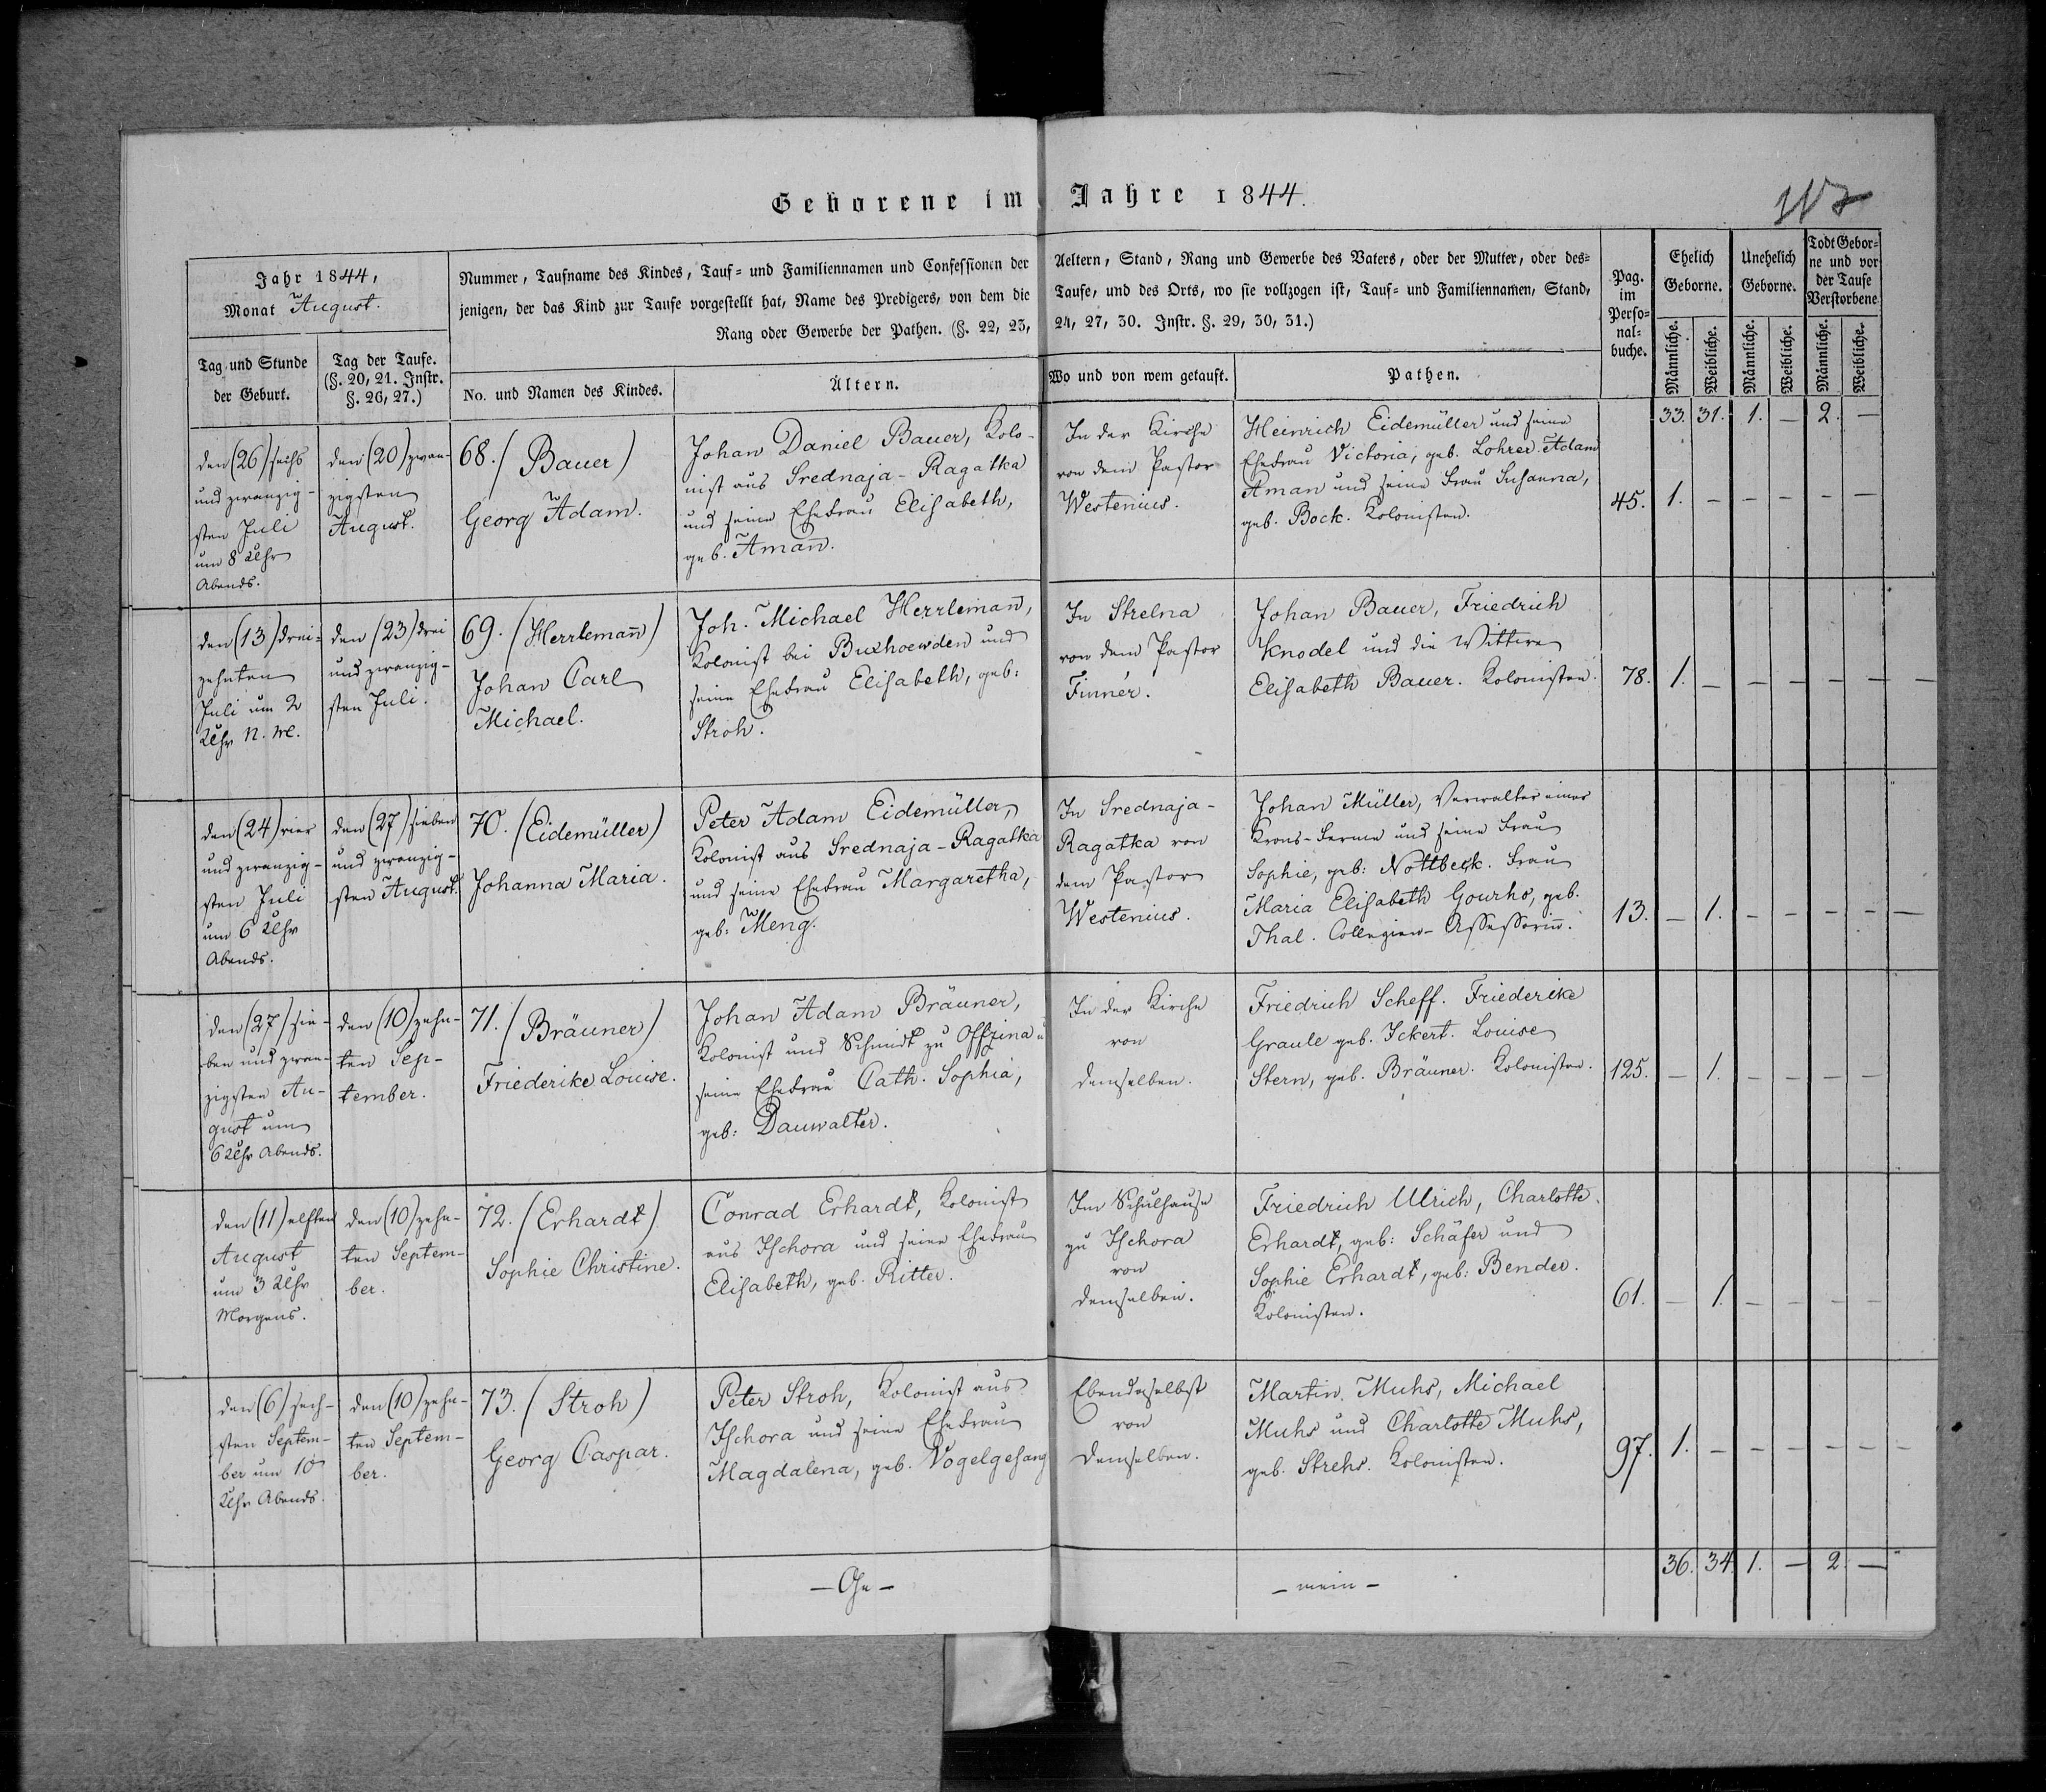 Geborene im Jahre 1844.
Jahr 1844,
Monat August.
Nummer, Taufname des Kindes, Tauf- und Familiennamen und Confessionen der Aeltern, Stand, Rang und Gewerbe des Vaters, oder der Mutter, oder des-
jenigen, der das Kind zur Taufe vorgestellt hat, Name des Predigers, von dem die Taufe, und des Orts, wo sie vollzogen ist, Tauf- und Familiennamen, Stand,
Rang oder Gewerbe der Pathen. (§. 22, 23, 24, 27, 30. Instr. §. 29, 30, 31.)
Pag.
im
Perso-
nal-
buche.
Ehelich
Geborne.
Unehelich
Geborne.
Todt Gebor-
ne und vor
der Taufe
Verstorbene
Tag und Stunde
der Geburt.
Tag der Taufe.
(§. 20, 21. Instr.
§. 26, 27.)
No. und Namen des Kindes.
Ältern.
Wo und von wem getauft.
Pathen.
Männliche.
Weibliche.
Männliche.
Weibliche.
Männliche.
Weibliche.
33. 31. 1. — 2. —
den (26) sechs
und zwanzig-
sten Juli
um 8 Uhr
Abends.
den (20) zwan-
zigsten
August.
68. (Bauer)
Georg Adam.
Johan Daniel Bauer, Kolo-
nist aus Srednaja-Ragatka
und seine Ehefrau Elisabeth,
geb. Aman̄.
In der Kirche
von dem Pastor
Westenius.
Heinrich Eidemüller und seine
Ehefrau Victoria, geb. Lohrer. Adam
Aman und seine Frau Susanna,
geb. Bock. Kolonisten.
45. 1. — — — — —
den (13) drei-
zehnten
Juli um 2
Uhr N. M.
den (23) drei
und zwanzig-
sten Juli.
69. (Herrleman̄)
Johan Carl
Michael.
Joh. Michael Herrleman̄,
Kolonist bei Buxhoewden und
seine Ehefrau Elisabeth, geb:
Stroh.
In Strelna
von dem Pastor
Finnér.
Johan Bauer, Friedrich
Knodel und die Wittwe
Elisabeth Bauer. Kolonisten.
78. 1. — — — — — —
den (24) vier
und zwanzig-
sten Juli
um 6 Uhr
Abends.
den (27) sieben
und zwanzig-
sten August.
70. (Eidemüller)
Johanna Maria.
Peter Adam Eidemüller,
Kolonist aus Srednaja-Ragatka
und seine Ehefrau Margaretha,
geb: Meng.
In Srednaja-
Ragatka von
dem Pastor
Westenius.
Johan Müller, Verwalter einer
Krons-Ferme und seine Frau
Sophie, geb: Nottbeck. Frau
Maria Elisabeth Gourho, geb.
Thal. Collegien-Assessorin̄.
13. — 1. — — — — —
den (27) sie-
ben und zwan-
zigsten Au-
gust um
6 Uhr Abends.
den (10) zehn-
ten Sep-
tember.
71. (Bräuner)
Friederike Louise.
Johan Adam Bräuner,
Kolonist und Schmidt zu Offzina u
seine Ehefrau Cath. Sophia,
geb: Dauwalter.
In der Kirche
von
demselben.
Friedrich Scheff. Friederike
Graule geb. Ickert. Louise
Stern, geb. Bräuner. Kolonisten.
125. — 1. — — — —
den (11) elften
August
um 3 Uhr
Morgens.
den (10) zehn-
ten Septem-
ber.
72. (Erhardt)
Sophie Christine.
Conrad Erhardt, Kolonist
aus Ischora und seine Ehefrau
Elisabeth, geb. Ritter.
Im Schulhause
zu Ischora
von
demselben.
Friedrich Ulrich, Charlotte
Erhardt, geb: Schäfer und
Sophie Erhardt, geb: Bender.
Kolonisten.
61. — 1. — — — —
den (6) sech-
sten Septem-
ber um 10
Uhr Abends.
den (10) zehn-
ten Septem-
ber.
73. (Stroh)
Georg Caspar.
Peter Stroh, Kolonist aus
Ischora und seine Ehefrau
Magdalena, geb. Vogelgesang
Ebendaselbst
von
demselben.
Martin Muhs, Michael
Muhs und Charlotte Muhs,
geb. Strehs. Kolonisten.
97. 1. — — — — — —
— Ge — — mein —
36. 34. 1. — 2. —